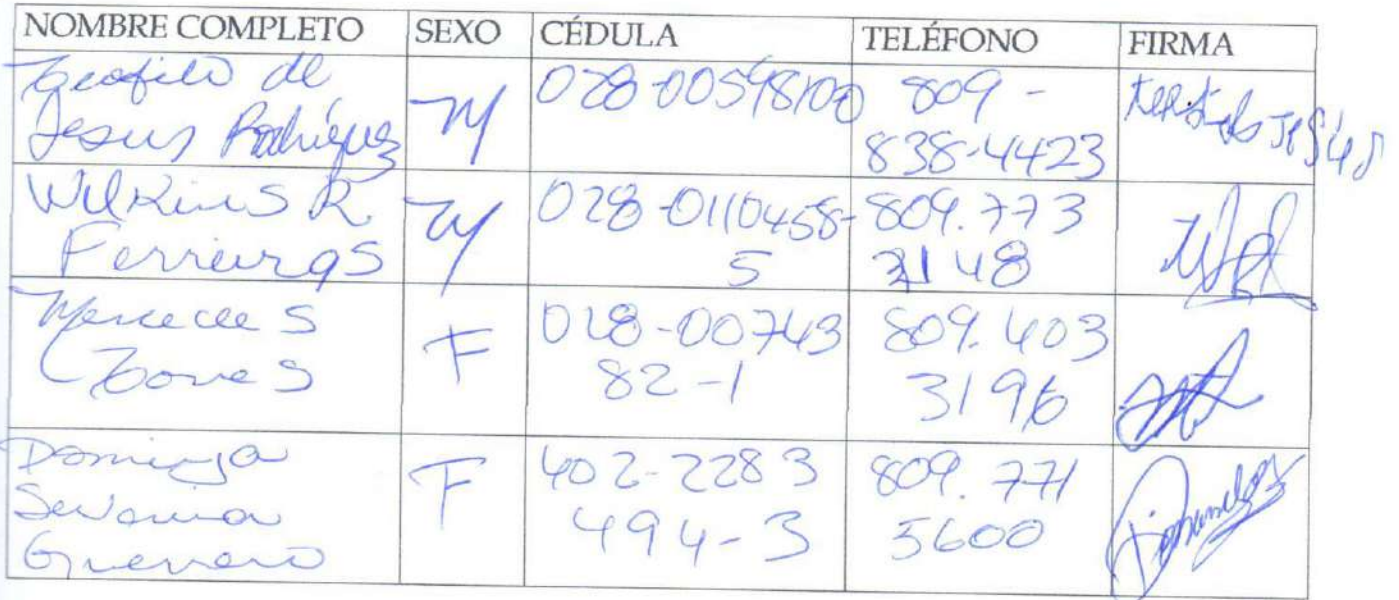 NOMBRE COMPLETO SEXO CÉDULA TELÉFONO FIRMA
Teofilo de
Jesus Rodríguez M 028-00598100 809-
838-4423
Wilkins R
Ferreiras M 028-0110458-
5 809.773
3148
Mercedes
Torres F 028-00743
82-1 809.403
3196
Dominga
Severino
Guerrero F 402-2283
494-3 809.771
5600